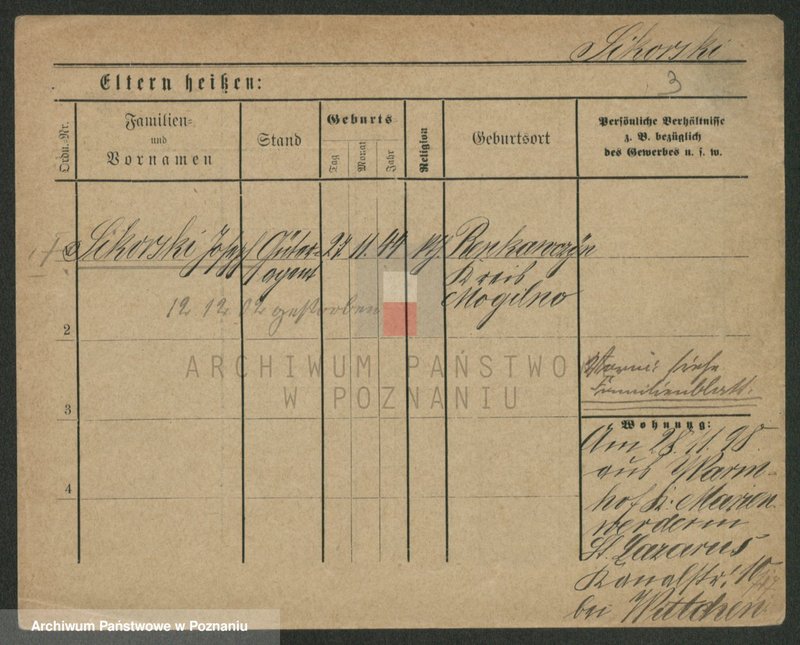 Sikorski
3
Eltern heißen:
Ordn.-Nr.
Familien-
und
Vornamen
Stand
Geburts-
Tag
Monat
Jahr
Religion
Geburtsort
Persönliche Verhältnisse
z. B. bezüglich
des Gewerbes u. s. w.
Sikorski Josef
Güter-
agent
27 11. 44
Kreis
Mogilno
12. 12. 02 gestorben
2
3
4
siehe
Familienblatt.
Wohnung:
Am 28. 11. 98.
aus Warm-
hof Kr. Marien
werder in
St. Lazarus
Kanalstr. 10
bei Wittchen
ARCHIWUM PAŃSTWO
W POZNANIU
Archiwum Państwowe w Poznaniu